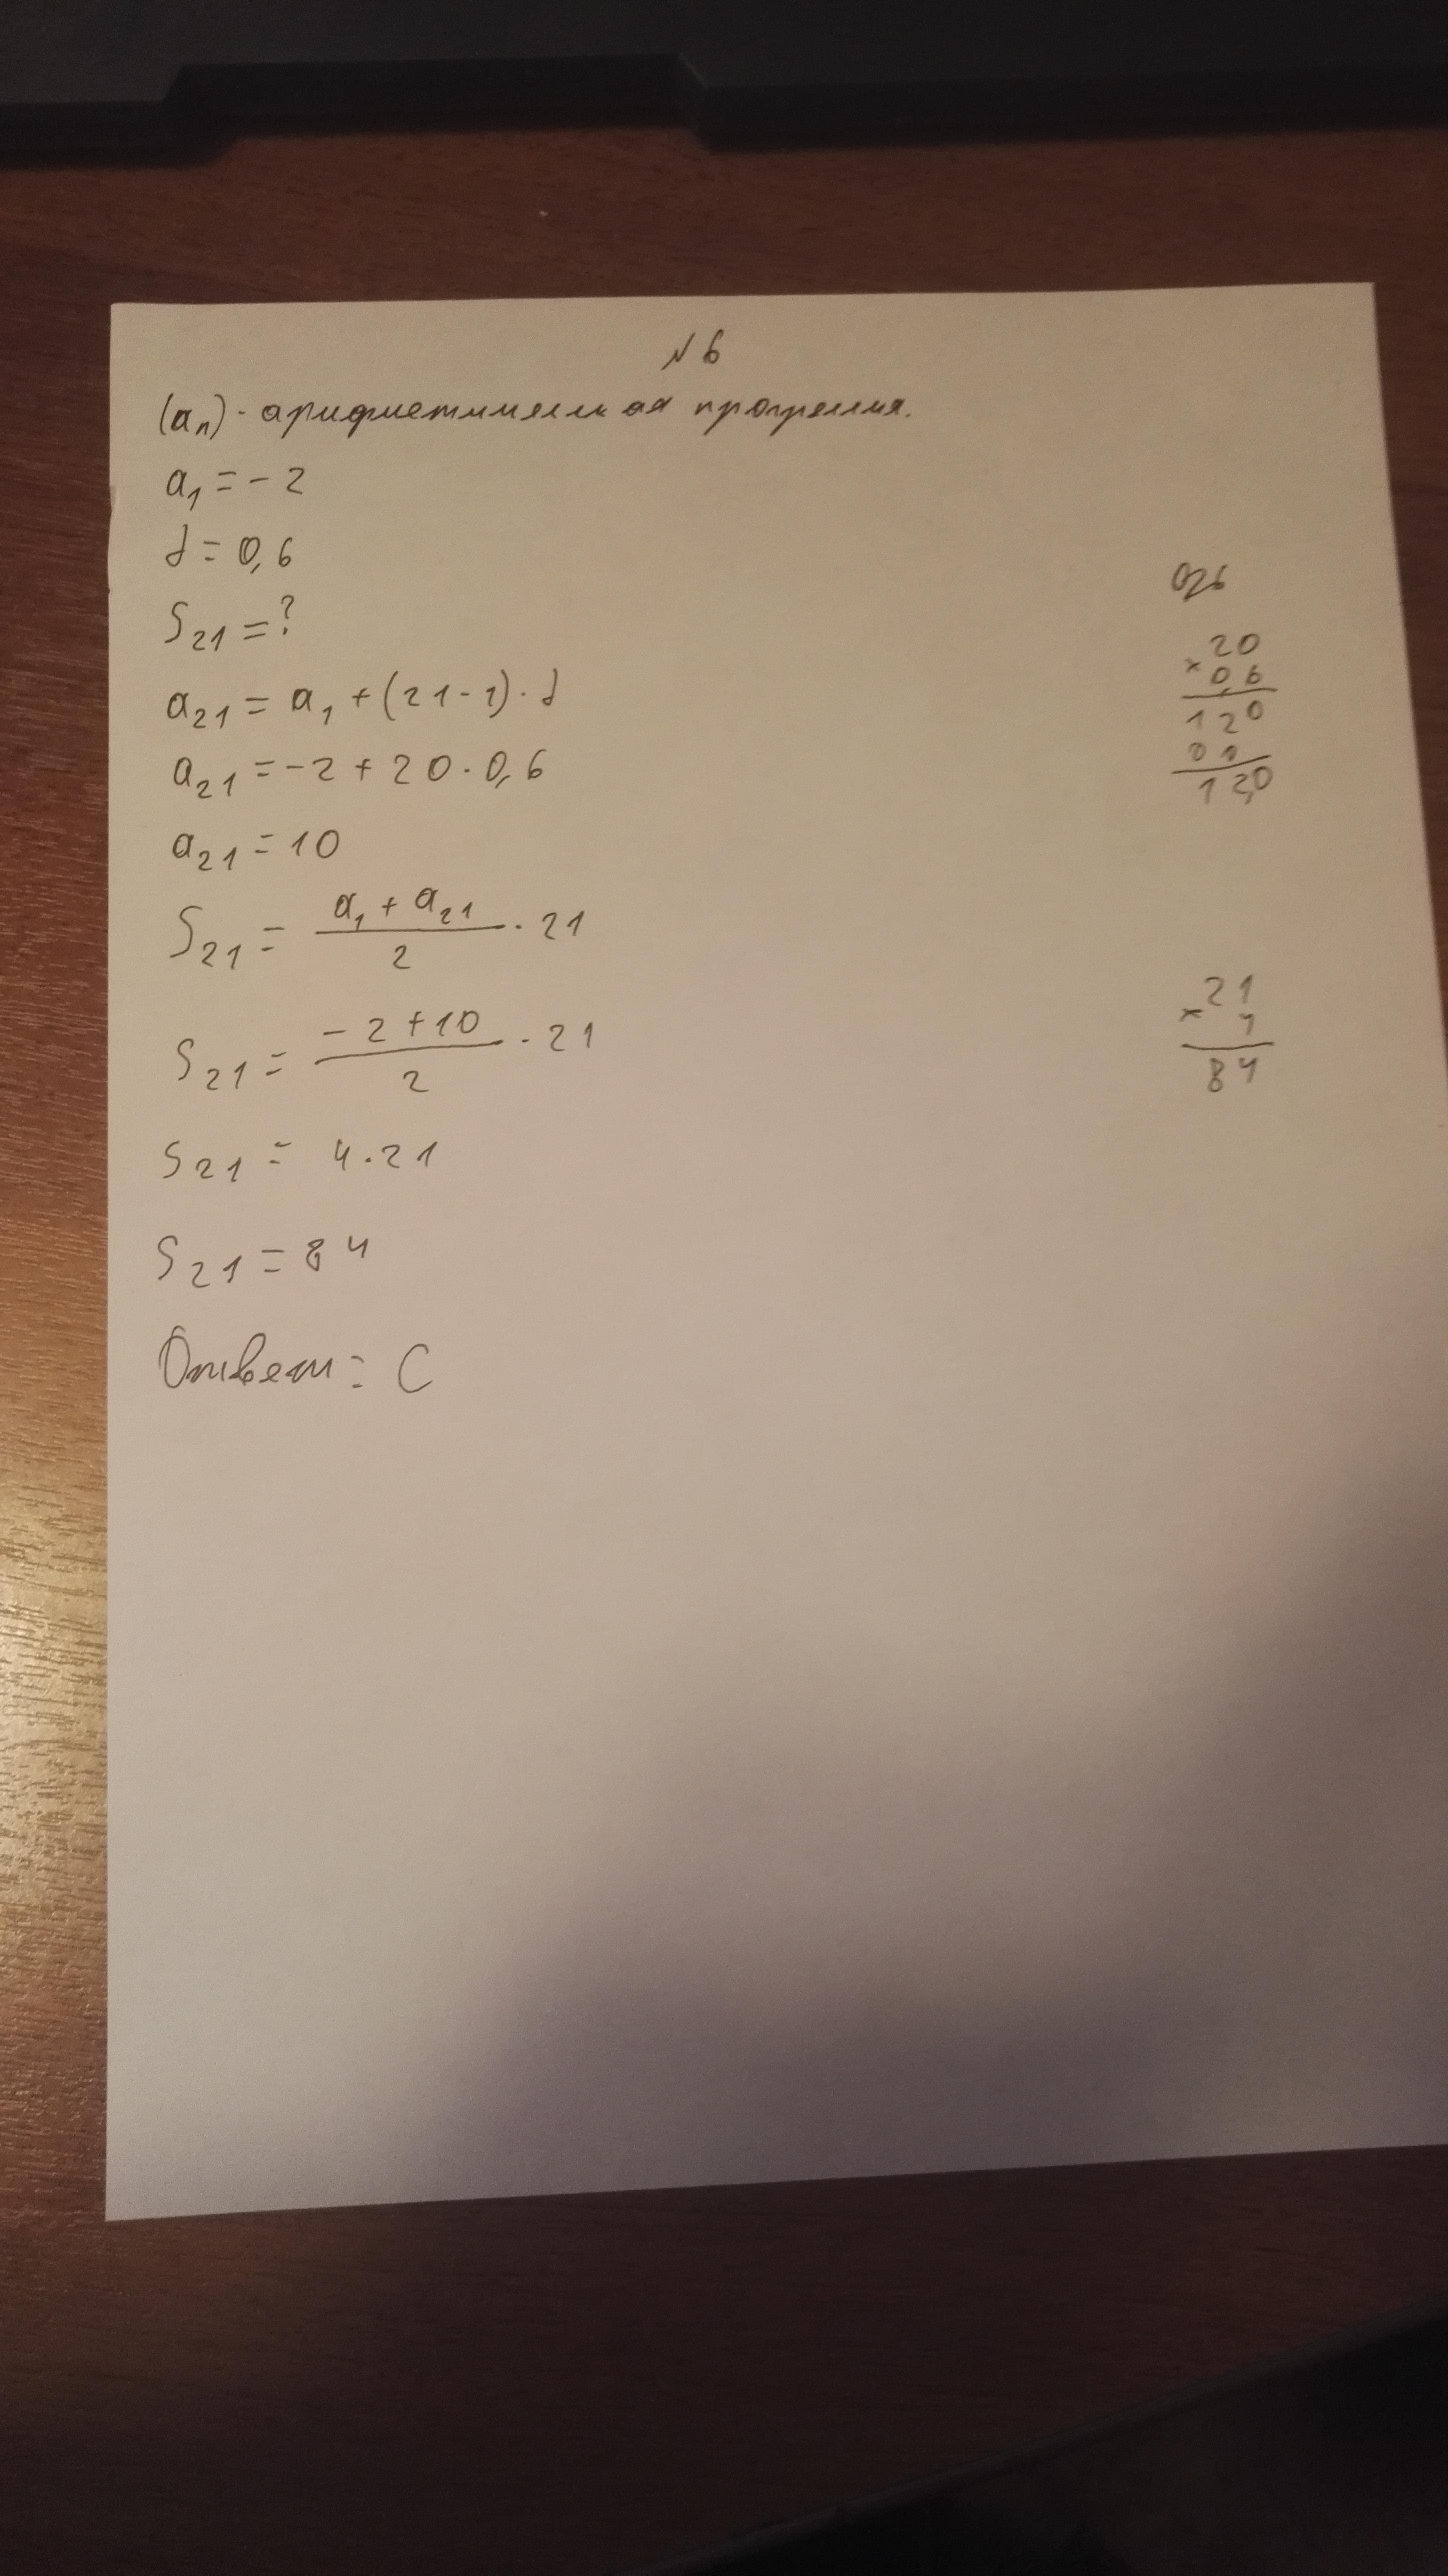 №6
(aₙ) - арифметическая прогрессия.
a₁ = - 2
d = 0,6
S₂₁ = ?
a₂₁ = a₁ + (21 - 1) · d
a₂₁ = -2 + 20 · 0,6
a₂₁ = 10
S₂₁ = (a₁ + a₂₁)/2 · 21
S₂₁ = (-2 + 10)/2 · 21
S₂₁ = 4 · 21
S₂₁ = 84
Ответ: C
20
× 0,6
120
12,0
21
× 4
84